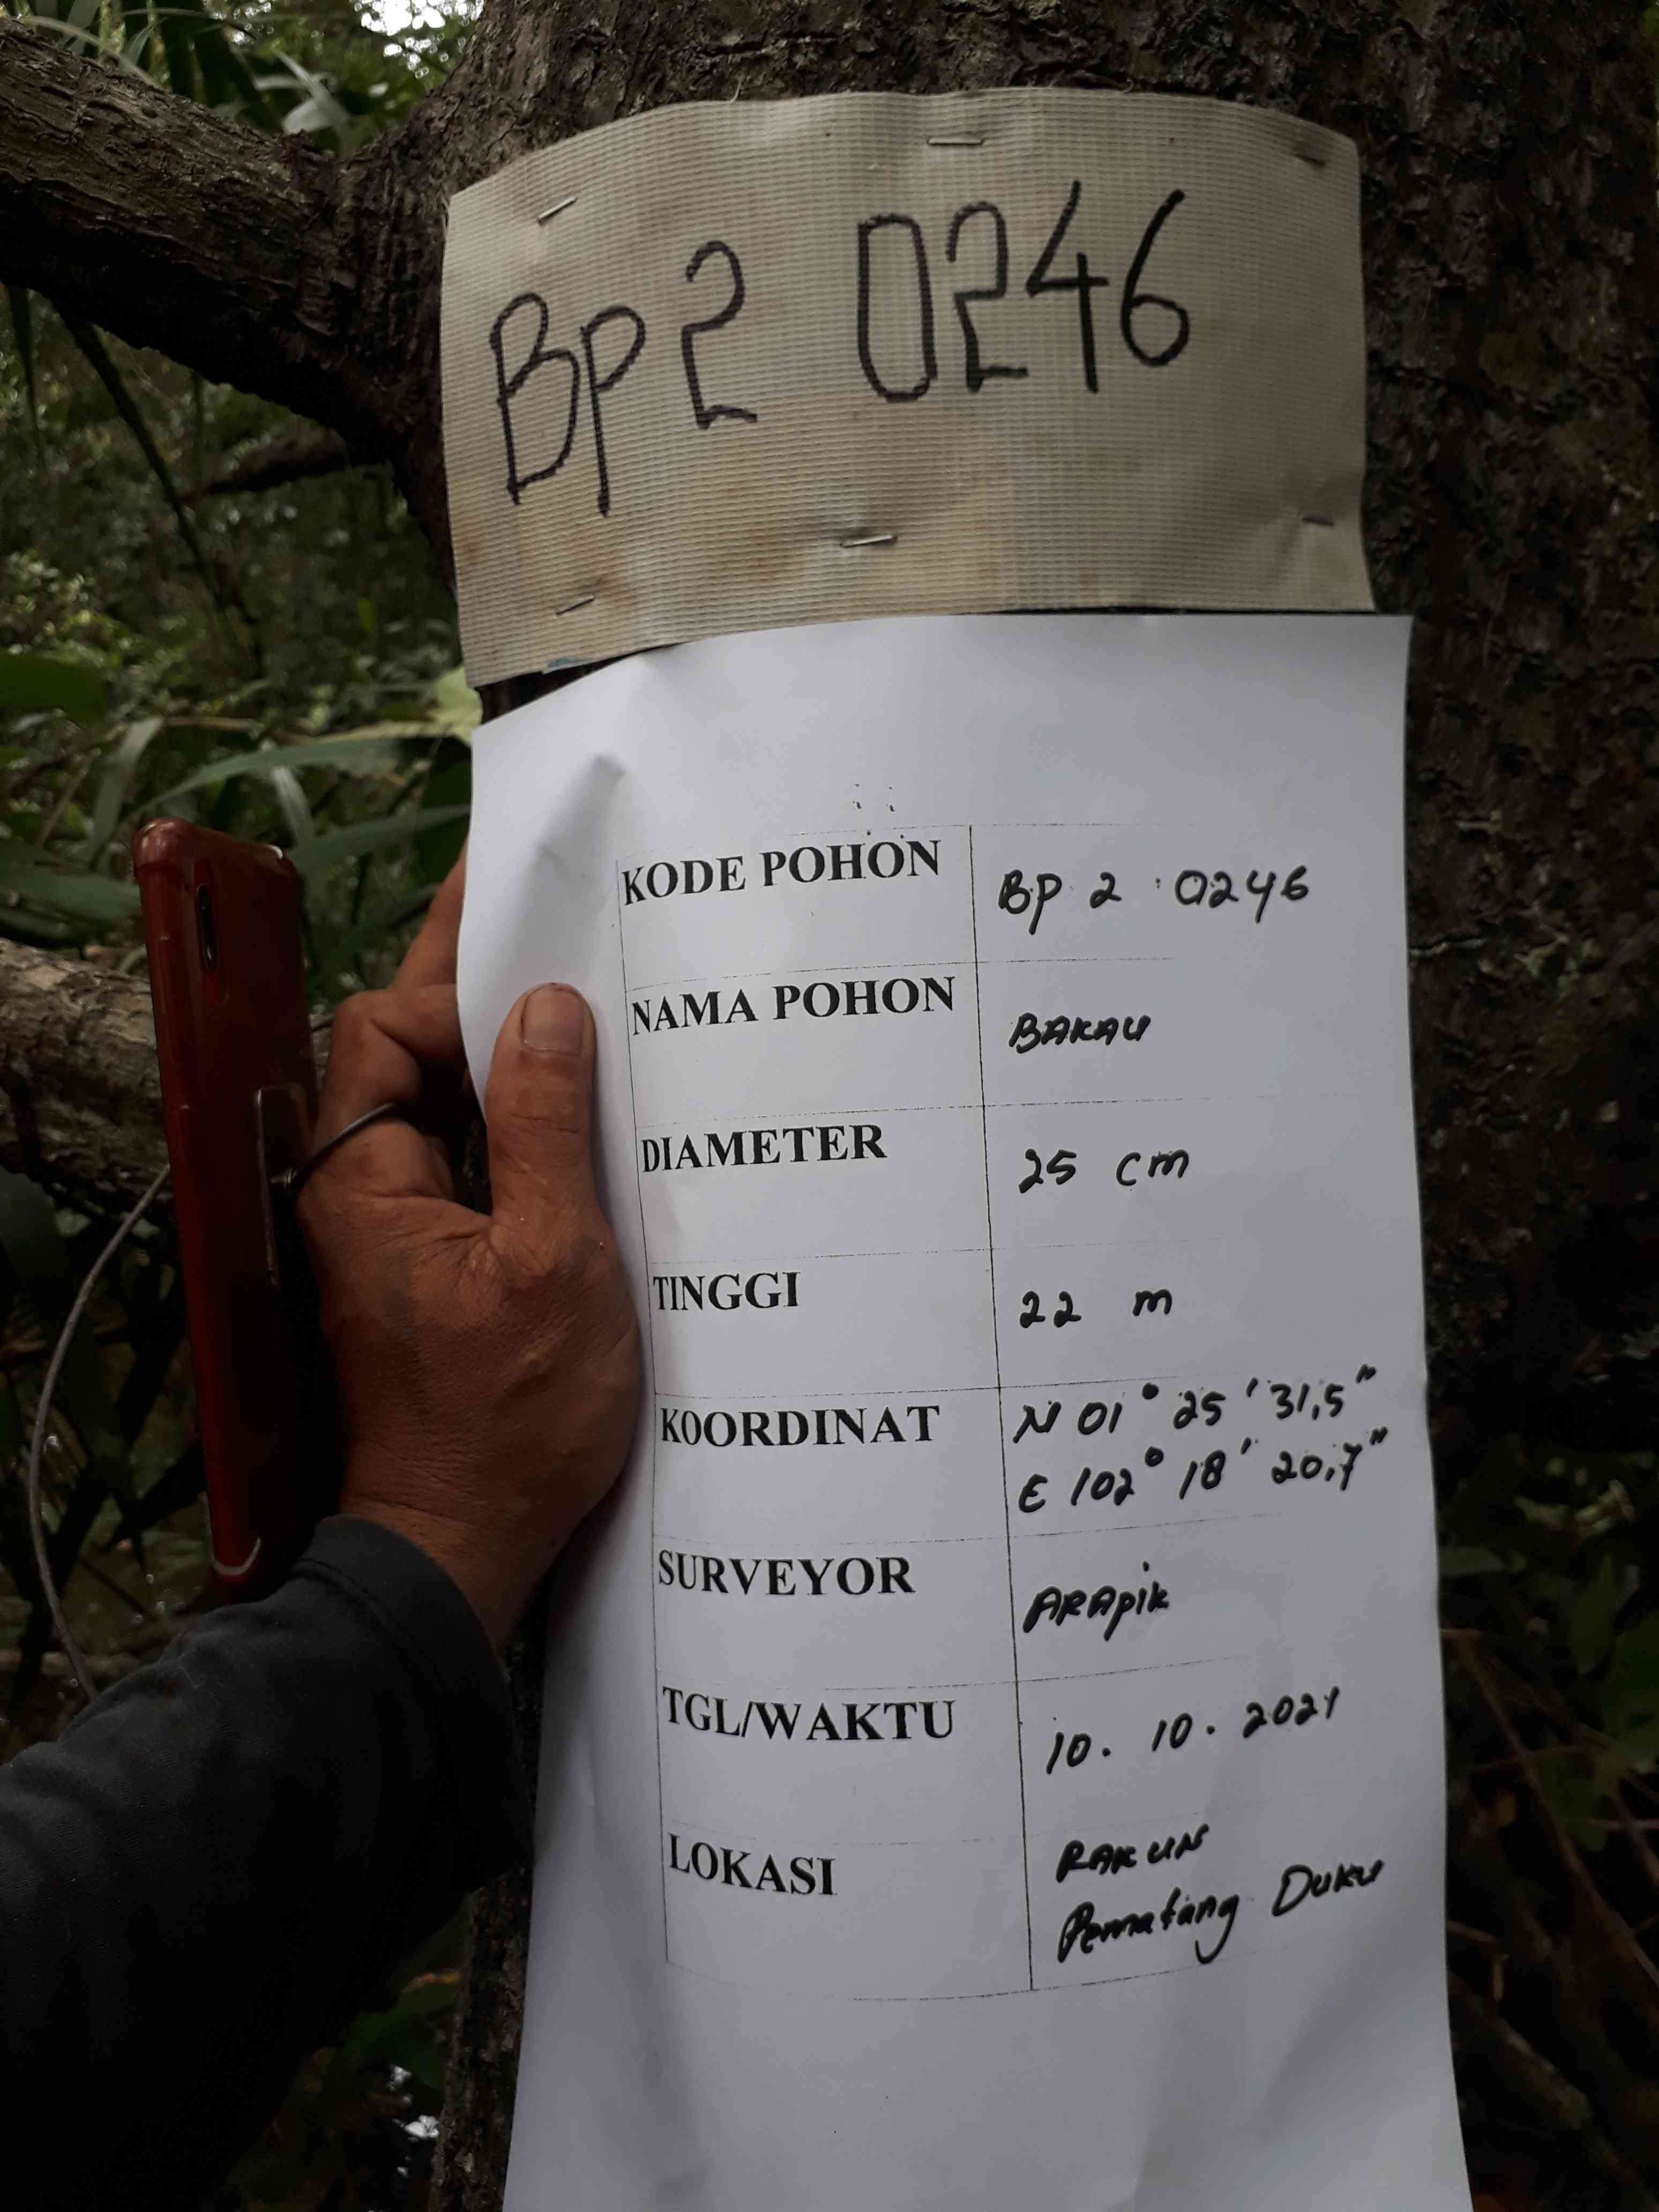 BP2 0246
KODE POHON BP 2 0246
NAMA POHON BAKAU
DIAMETER 25 cm
TINGGI 22 m
KOORDINAT N 01° 25' 31,5"
E 102° 18' 20,7"
SURVEYOR ARApik
TGL/WAKTU 10. 10. 2021
LOKASI RAKUN
Pematang Duku